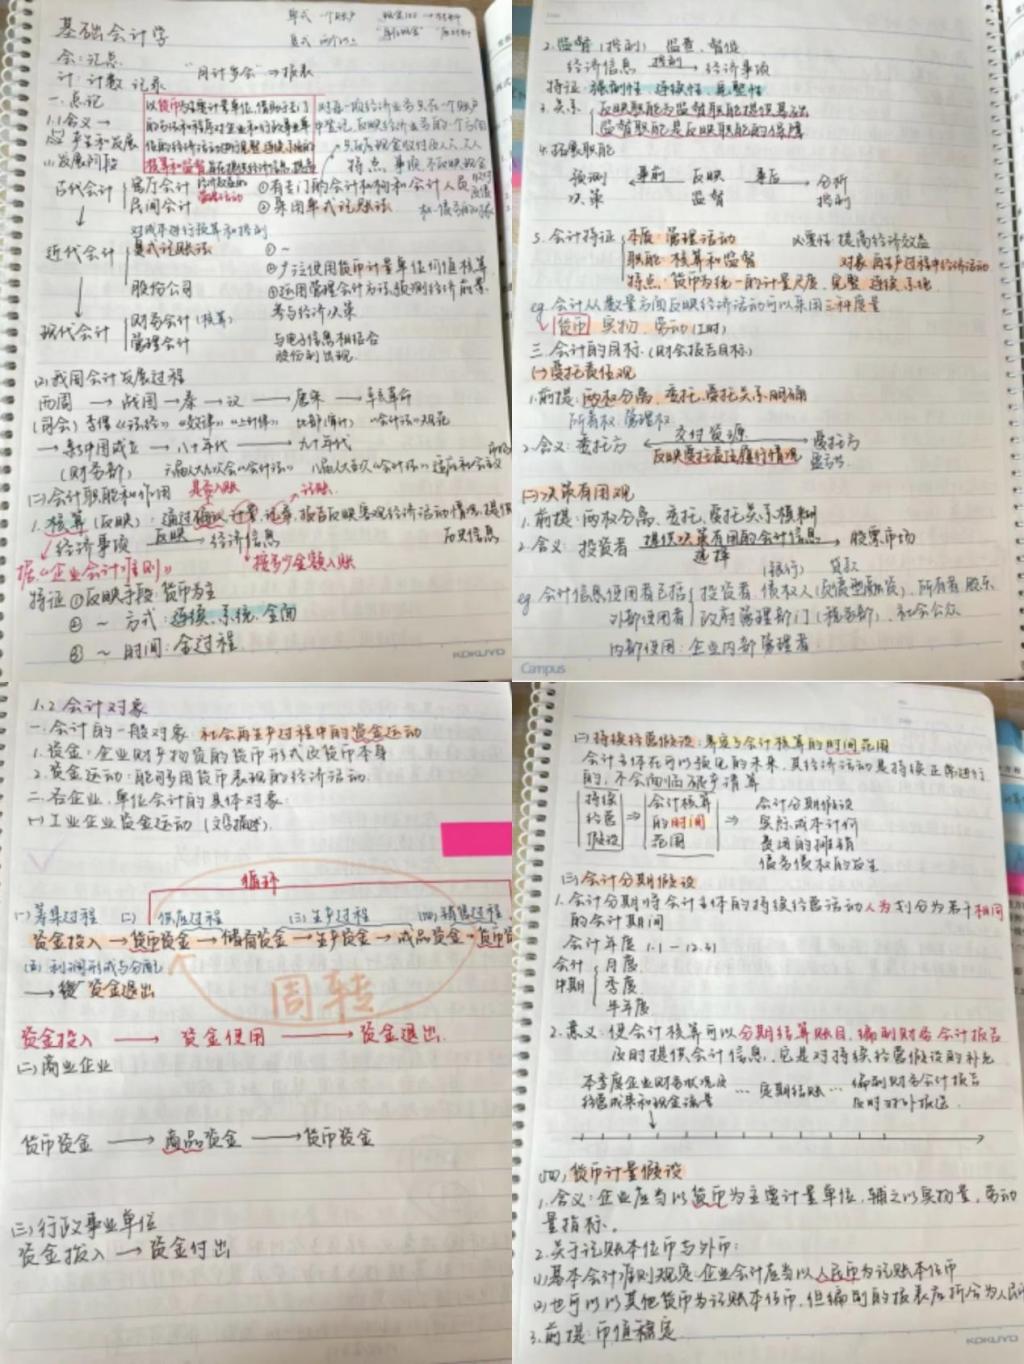 基础会计学
单式 一个账户
复式 两个以上
会：记总
计：计数 记录
"月计岁会"→报表
一、总论
1.1 含义→
以货币为主要计量单位，借助专门
的方法和程序对企业和行政事业单
位的经济活动进行完整、连续、系统的
核算和监督
产生和发展
(1)发展阶段
古代会计
官厅会计
民间会计
①有专门的会计机构和会计人员
②采用单式记账法
对成本进行核算和控制
近代会计
复式记账法
①～
②广泛使用货币计量单位价值核算
股份公司
③运用管理会计方法预测经济前景，
参与经济决策
现代会计
财务会计(核算)
管理会计
与电子信息相结合
股份制出现
(2)我国会计发展过程
西周 → 战国 → 秦 → 汉 → 唐宋 → 辛亥革命
→ 新中国成立 → 八十年代 → 九十年代
(财务部)
(二)会计职能和作用
是否入账
记账
1.核算(反映)：通过确认、计量、记录、报告反映客观经济活动情况，提供
经济事项 反映→ 经济信息
历史信息
据《企业会计准则》
按多少金额入账
特征 ①反映手段：货币为主
② ～ 方式：连续、系统、全面
③ ～ 时间：全过程
KOKUYO
2.监督(控制) 监查、督促
经济信息 控制→ 经济事项
特征：强制性、连续性、完整性
3.关系
反映职能为监督职能提供基础
监督职能是反映职能的保障
4.拓展职能
预测 ←事前 反映 事后→ 分析
决策 监督 控制
5.会计特征
本质：管理活动
必要性：提高经济效益
职能：核算和监督
对象：再生产过程中经济活动
特点：货币为统一的计量尺度，完整、连续、系统
eg.会计从数量方面反映经济活动可以采用三种度量
货币 实物、劳动(工时)
三、会计的目标(财会报告目标)
(一)受托责任观
1.前提：两权分离，委托、受托关系明确
所有权、管理权
2.含义：委托方
交付资源
受托方
反映受托责任履行情况
(二)决策有用观
1.前提：两权分离，委托、受托关系模糊
2.含义：投资者 提供决策有用的会计信息→ 股票市场
选择
(银行) 贷款
eg.会计信息使用者包括
投资者、债权人、所有者、股东
外部使用者
政府管理部门(税务部)、社会公众
内部使用：企业内部管理者
Campus
1.2 会计对象
一、会计的一般对象：社会再生产过程中的资金运动
1.资金：企业财产物资的货币形式及货币本身
2.资金运动：能够用货币表现的经济活动
二、各企业、单位会计的具体对象：
(一)工业企业资金运动(文字描述)
循环
(一)筹集过程 (二)供应过程 (三)生产过程 (四)销售过程
资金投入→货币资金→储备资金→生产资金→成品资金→货币资
(五)利润形成与分配
→资金退出
周转
资金投入 → 资金使用 → 资金退出
(二)商业企业
货币资金 → 商品资金 → 货币资金
(三)行政事业单位
资金投入 → 资金付出
(二)持续经营假设：界定了会计核算的时间范围
会计主体在可以预见的未来，其经济活动是持续正常进行
的，不会面临破产清算
持续
经营
假设
⇒
会计核算
的时间
范围
⇒
会计分期假设
实际成本计价
费用的摊销
债务债权的发生
(三)会计分期假设
1.会计分期将会计主体的持续经营活动人为划分为若干相同
的会计期间
会计年度 1.1－12.31
会计
中期
月度
季度
半年度
2.意义：使会计核算可以分期结算账目，编制财务会计报告
及时提供会计信息，它是对持续经营假设的补充
本季度企业财务状况及
经营成果和现金流量
… 定期结账 …
编制财务会计报告
及时对外报送
(四)货币计量假设
1.含义：企业应当以货币为主要计量单位，辅之以实物量、劳动
量指标。
2.关于记账本位币与外币：
(1)基本会计准则规定：企业会计应当以人民币为记账本位币
(2)也可以以其他货币为记账本位币，但编制的报表应折合为人民币
3.前提：币值稳定
KOKUYO